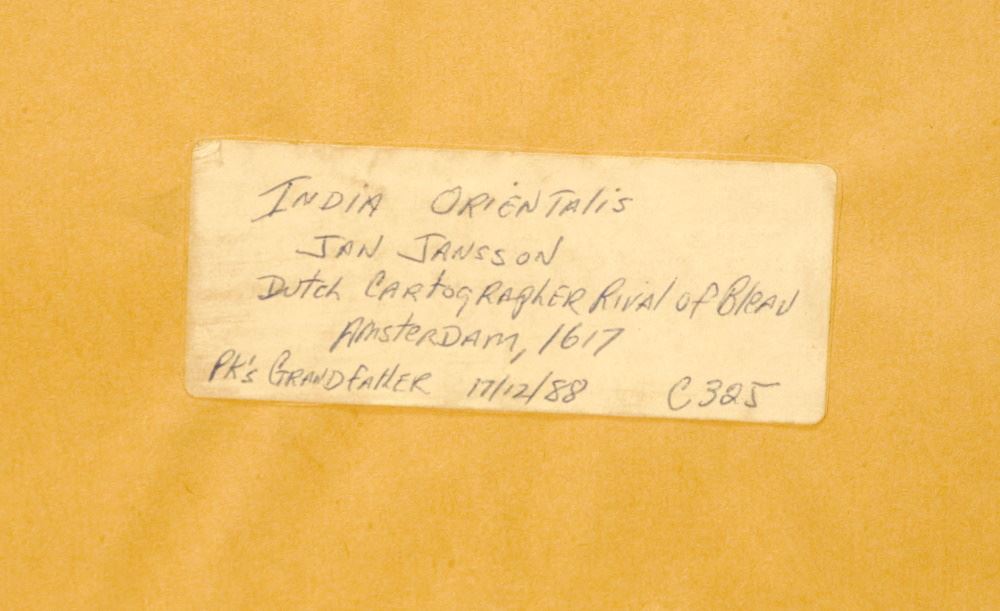 India Orientalis
Jan Jansson
Dutch Cartographer Rival of Bleau
Amsterdam, 1617
PK's Grandfather 17/12/88 C325